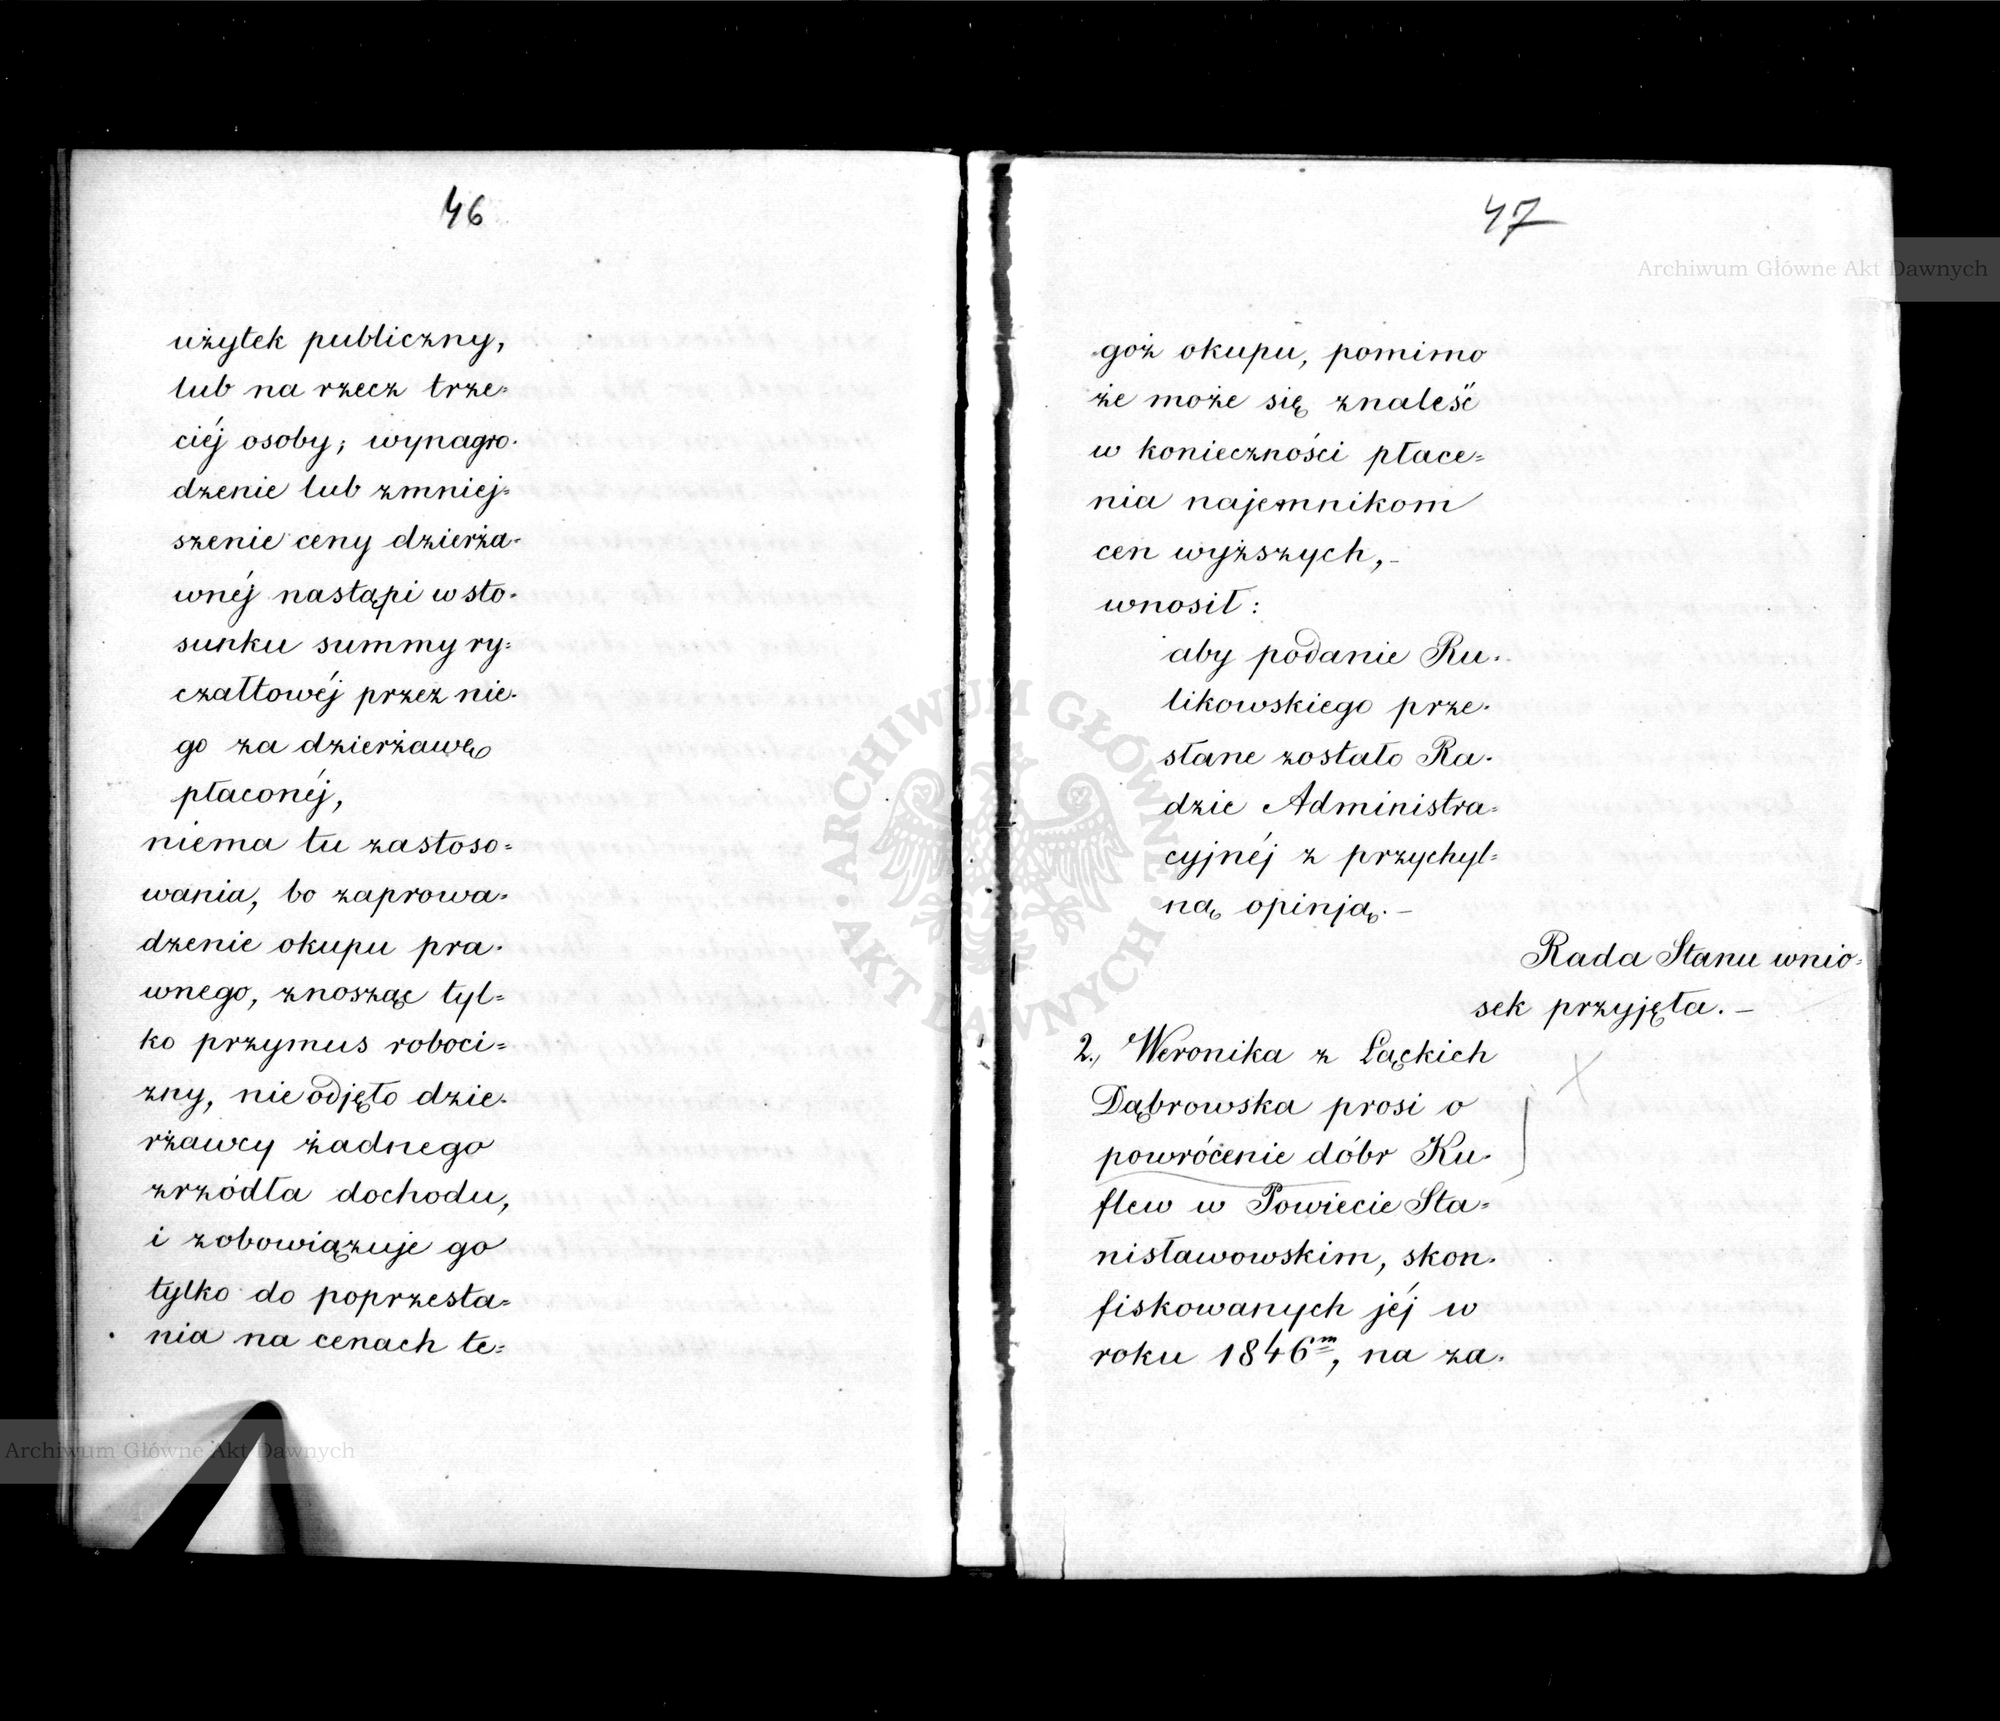 46
użytek publiczny,
lub na rzecz trze=
ciéj osoby; wynagro-
dzenie lub zmniej=
szenie ceny dzierża-
wnéj nastąpi w sto-
sunku summy ry=
czałtowéj przez nie-
go za dzierżawę
płaconéj,
niema tu zastoso=
wania, bo zaprowa-
dzenie okupu pra-
wnego, znosząc tyl=
ko przymus roboci=
zny, nie odjęło dzie-
rżawcy żadnego
zrzódła dochodu,
i zobowiązuje go
tylko do poprzesta=
nia na cenach te=
47
goż okupu, pomimo
że może się znaleść
w konieczności płace=
nia najemnikom
cen wyższych, -
wnosił:
aby podanie Ru-
likowskiego prze-
słane zostało Ra-
dzie Administra=
cyjnéj z przychyl=
ną opinją. -
Rada Stanu wnio=
sek przyjęła. -
2., Weronika z Łąckich
Dąbrowska prosi o
powrócenie dóbr Ku-
flew w Powiecie Sta=
nisławowskim, skon-
fiskowanych jéj w
roku 1846m, na za-
Archiwum Główne Akt Dawnych
Archiwum Główne Akt Dawnych
ARCHIWUM GŁÓWNE AKT DAWNYCH